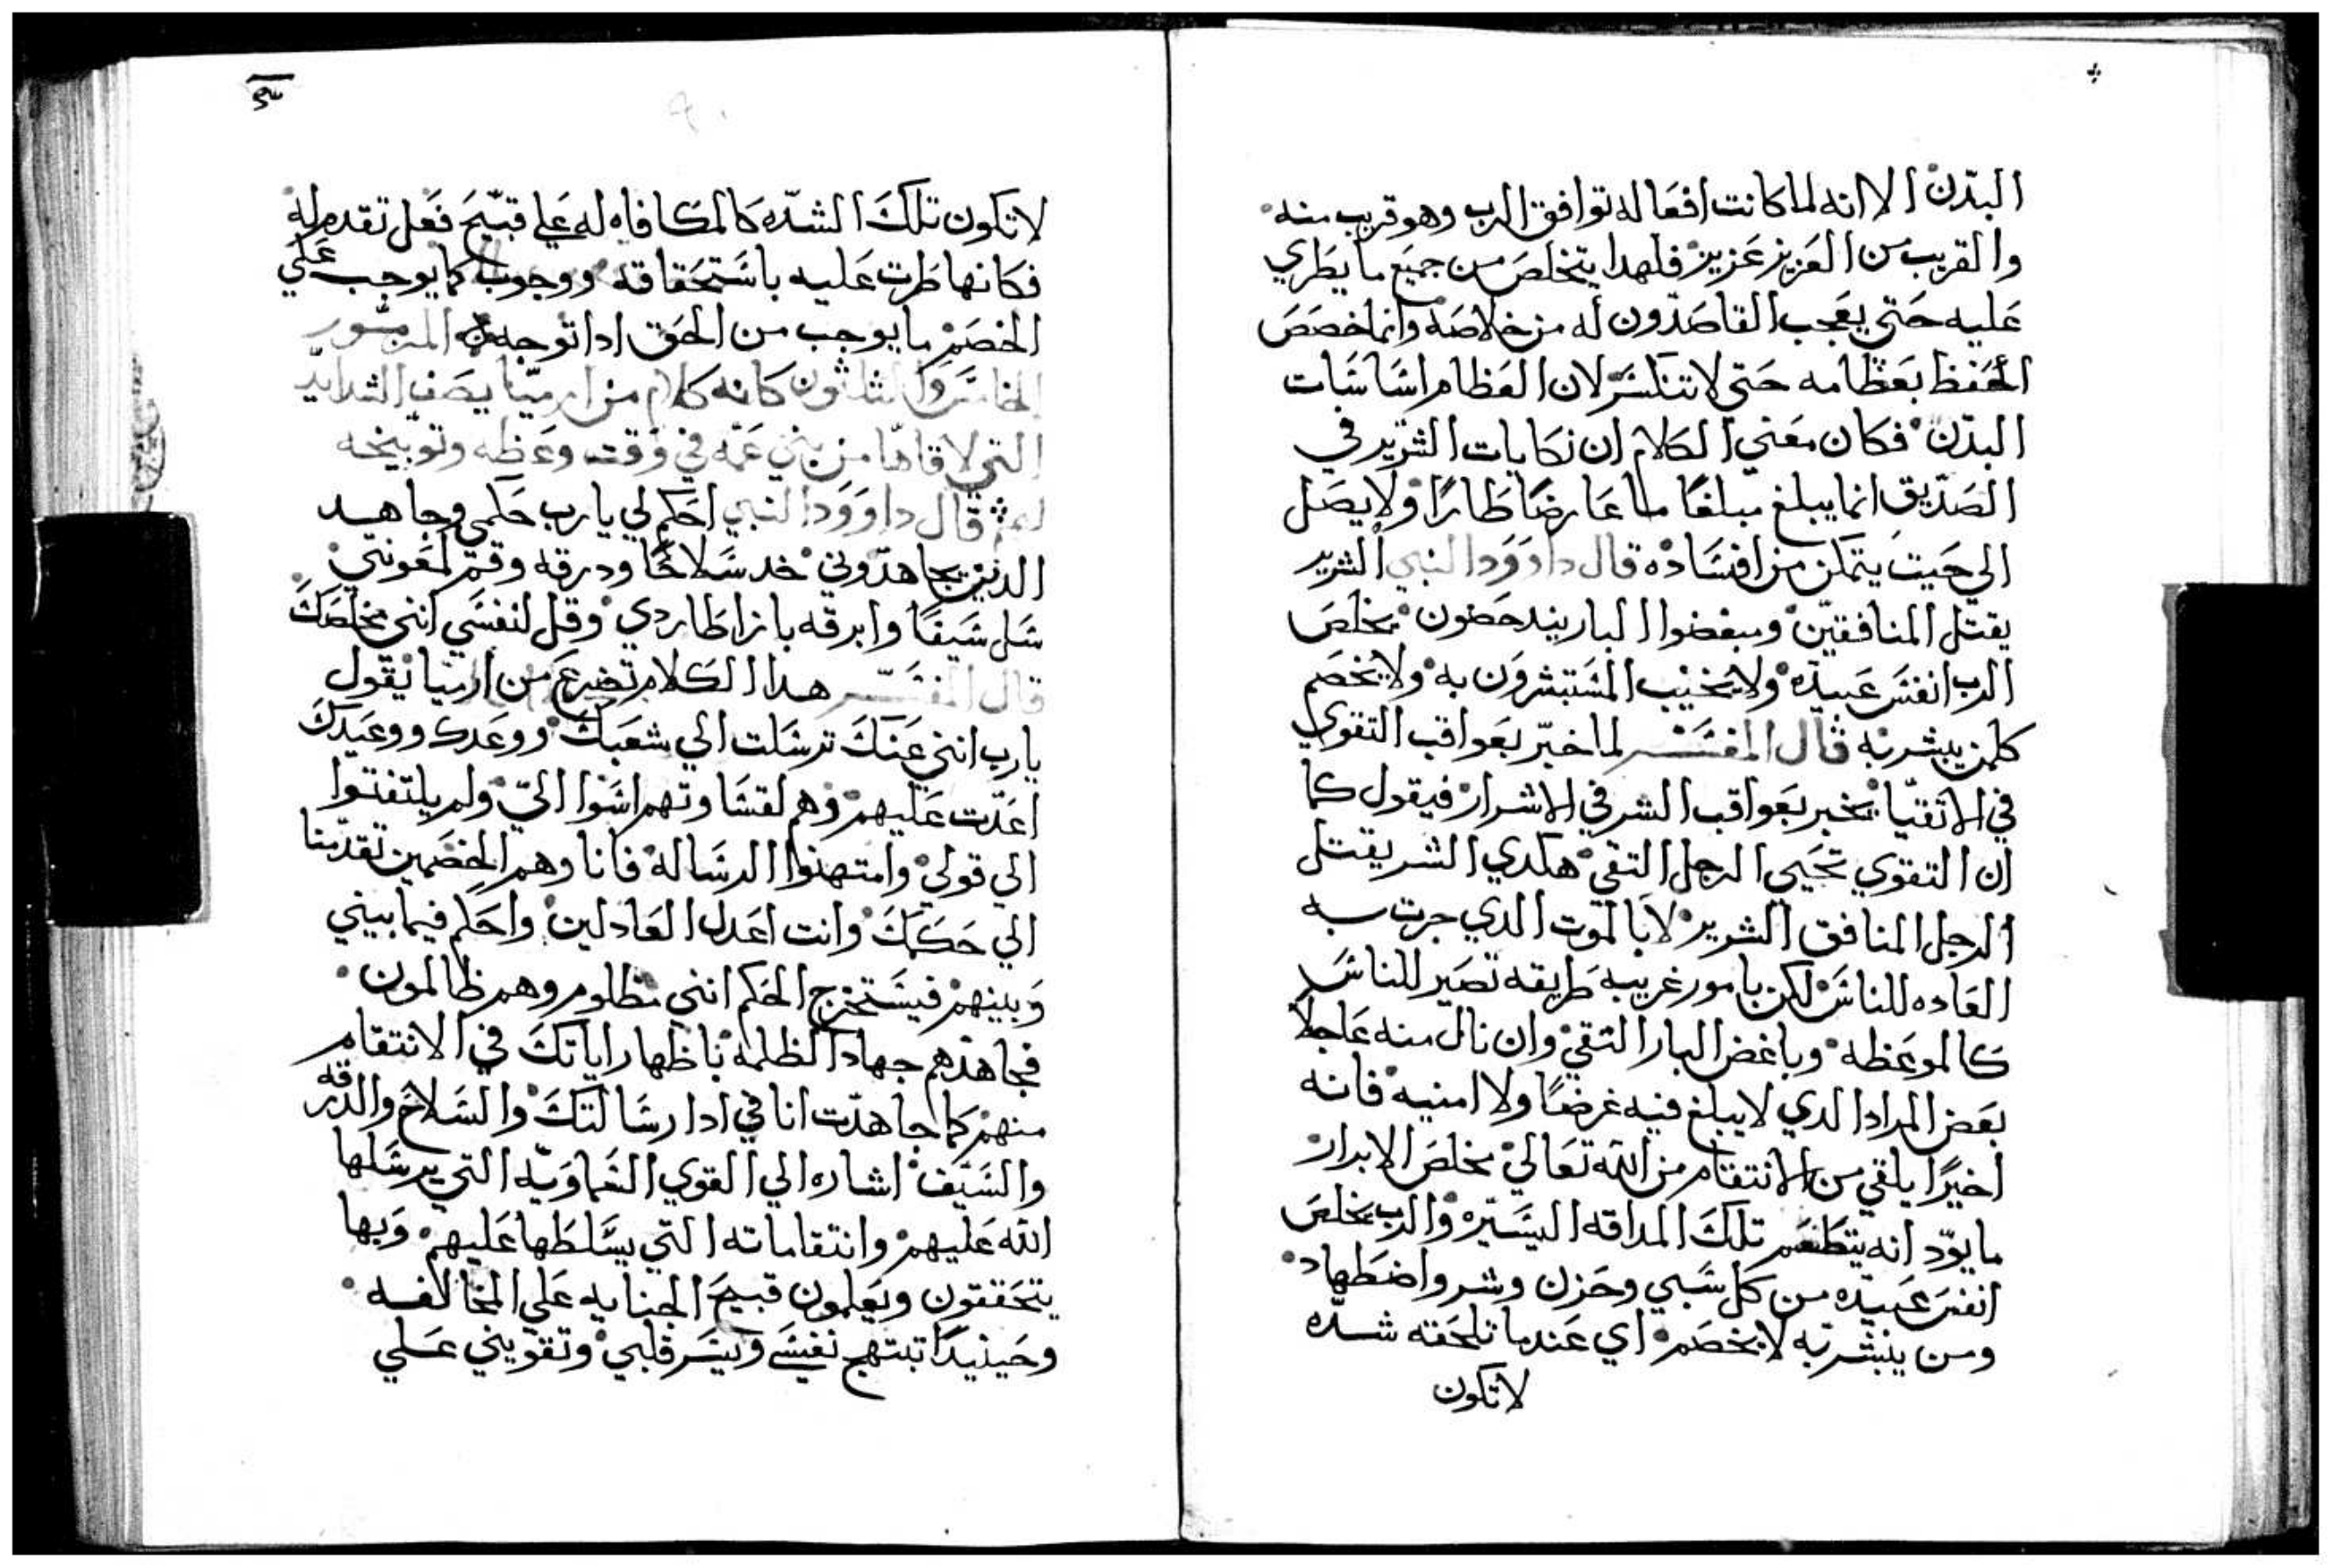 البدن الا انه لما كانت افعاله توافق الرب وهو قريب منه
والقريب من العزيز عزيز فلهدا يتخلص من جميع ما يطري
عليه حتى يعجب القاصدون له من خلاصه وانما خصص
الحفظ بعظامه حتى لا تنكسر لان العظام اساسات
البدن فكان معني الكلام ان نكايات الشرير في
الصديق انما يبلغ مبلغا ما عارضا طارا ولا يصل
الي حيت يتمكن من افساده قال داوود النبي الشرير
يقتل المنافقين ومبغضوا البار يندحضون يخلص
الرب انفس عبيده ولا يخيب المستبشرون به ولا يخصم
كلمن يبشر به قال المفسر لما خبر بعواقب التقوي
في الاتقيا يخبر بعواقب الشر في الاشرار فيقول كما
ان التقوي تحيي الرجل التقي هكدي الشر يقتل
الرجل المنافق الشرير لا بالموت الدي جرت به
العاده للناس لكن بامور غريبه طريقه تصير للناس
كالموعظه وباغض البار التقي وان نال منه عاجلا
بعض المراد الدي لا يبلغ فيه غرضا ولا امنيه فانه
اخيرا يلقي من الانتقام من الله تعالي مخلص الابرار
ما يود انه يتطعم تلك المداقه اليسيره والرب يخلص
انفس عبيده من كل سبي وحزن وشر واضطهاد
ومن ينبشر به لا يخصم اي عندما تلحقه شده
لا تكون
لا تكون تلك الشده كالمكافاه له علي قبيح فعل تقدم له
فكانها طرت عليه باستحقاقه ووجوب كما يوجب علي
الخصم ما يوجب من الحق ادا توجه المزمور
الخامس والثلثون كانه كلام من ارميا يصف الشدايد
التي لاقاها من بني عمه في وقت وعظه وتوبيخه
لهم قال داوود النبي احكم لي يارب حكمي وجاهد
الدين يجاهدوني خد سلاحا ودرقه وقم لمعونتي
سل سيفا وابرقه بازا طاردي وقل لنفسي انني مخلصك
قال المفسر هدا الكلام تضرع من ارميا يقول
يارب انني عنك ترسلت الي شعبك ووعدك ووعيدك
اعدت عليهم وهم لقساوتهم اسوا الي ولم يلتفتوا
الي قولي وامتهنوا الرساله فانا وهم الخصمين تقدمنا
الي حكمك وانت اعدل العادلين واحكم فيما بيني
وبينهم فيستخرج الحكم انني مظلوم وهم ظالمون
فجاهدهم جهاد الظلمه باظهار اياتك في الانتقام
منهم كما جاهدت انا في ادا رسالتك والسلاح والدرقه
والسيف اشاره الي القوي السماويه التي يرسلها
الله عليهم وانتقاماته التي يسلطها عليهم وبها
يتحققون ويعلمون قبيح الجنايه علي المخالفه
وحينيدا تبتهج نفسي ويسر قلبي وتقويني علي